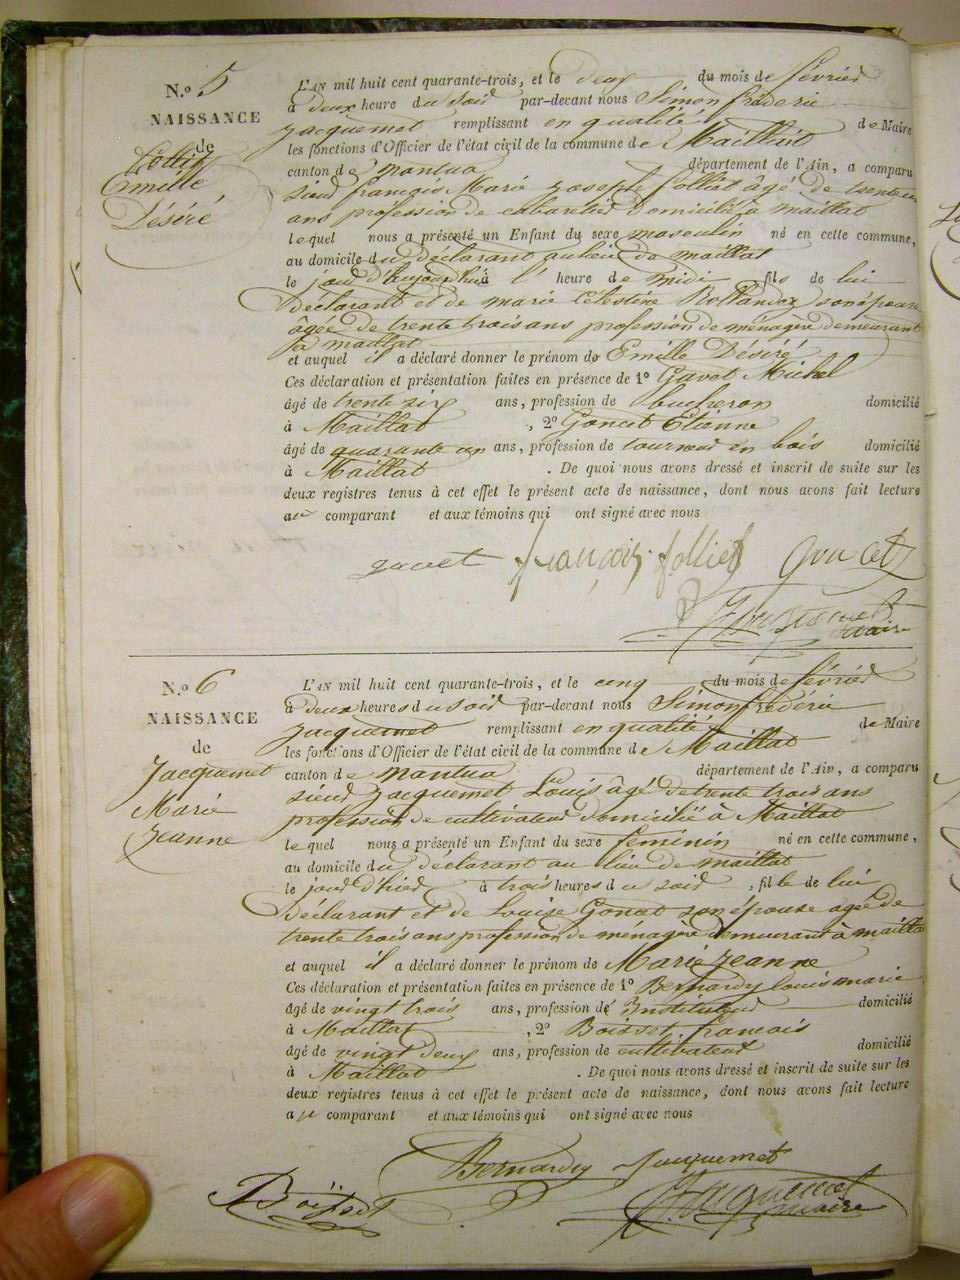 N.o 5
NAISSANCE
de
Folliet
Emille
Déséré
L'AN mil huit cent quarante-trois, et le deux du mois de février
à deux heure du soir par-devant nous Simon fréderic
jacquemet remplissant en qualité de Maire
les fonctions d'Officier de l'état civil de la commune de Maillat
canton de nantua département de l'Ain, a comparu
sieur françois Marie joseph folliet âgé de trente un
ans profession de cabaretier domicilié à maillat
lequel nous a présenté un Enfant du sexe masculin né en cette commune,
au domicile du déclarant au lieu de maillat
le jour d'aujourd'hui à l' heure de midi fils de lui
déclarant et de marie célestine Rollandez son épouse
âgée de trente trois ans profession de ménagère demeurant
à maillat
et auquel il a déclaré donner le prénom de Emille Déséré
Ces déclaration et présentation faites en présence de 1o Gavet Michel
âgé de trente six ans, profession de bucheron domicilié
à Maillat , 2o Goncet Etienne
âgé de quarante un ans, profession de tourneur en bois domicilié
à Maillat . De quoi nous avons dressé et inscrit de suite sur les
deux registres tenus à cet effet le présent acte de naissance, dont nous avons fait lecture
au comparant et aux témoins qui ont signé avec nous
gavet françois folliet Goncet
Jacquemet
maire
N.o 6
NAISSANCE
de
Jacquemet
Marie
Jeanne
L'AN mil huit cent quarante-trois, et le cinq du mois de février
à deux heures du soir par-devant nous Simon fréderic
jacquemet remplissant en qualité de Maire
les fonctions d'Officier de l'état civil de la commune de Maillat
canton de nantua département de l'Ain, a comparu
sieur Jacquemet Louis âgé de trente trois ans
profession de cultivateur domicilié à Maillat
lequel nous a présenté un Enfant du sexe féminin né en cette commune,
au domicile du déclarant au lieu de maillat
le jour d'hier à trois heures du soir , fille de lui
déclarant et de Louise Goncet son épouse agée de
trente trois ans profession de ménagère demeurant à maillat
et auquel il a déclaré donner le prénom de Marie jeanne
Ces déclaration et présentation faites en présence de 1o Bernardy louis marie
âgé de vingt trois ans, profession de Instituteur domicilié
à Maillat , 2o Boisset françois
âgé de vingt deux ans, profession de cultivateur domicilié
à Maillat . De quoi nous avons dressé et inscrit de suite sur les
deux registres tenus à cet effet le présent acte de naissance, dont nous avons fait lecture
au comparant et aux témoins qui ont signé avec nous
Bernardy Jacquemet
Boisset Jacquemet
maire